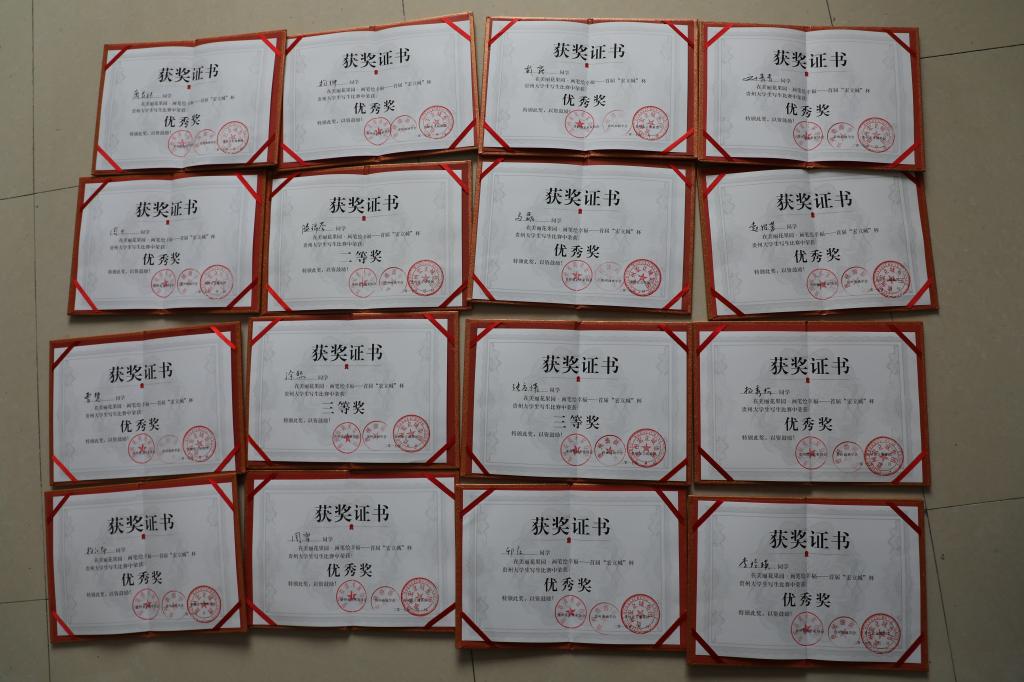 获奖证书
同学
在美丽花果园·画笔绘幸福——首届“宏立城”杯
贵州大学生写生比赛中荣获:
优秀奖
特颁此奖,以资鼓励!
获奖证书
同学
在美丽花果园·画笔绘幸福——首届“宏立城”杯
贵州大学生写生比赛中荣获:
优秀奖
特颁此奖,以资鼓励!
获奖证书
同学
在美丽花果园·画笔绘幸福——首届“宏立城”杯
贵州大学生写生比赛中荣获:
优秀奖
特颁此奖,以资鼓励!
获奖证书
同学
在美丽花果园·画笔绘幸福——首届“宏立城”杯
贵州大学生写生比赛中荣获:
优秀奖
特颁此奖,以资鼓励!
获奖证书
同学
在美丽花果园·画笔绘幸福——首届“宏立城”杯
贵州大学生写生比赛中荣获:
优秀奖
特颁此奖,以资鼓励!
获奖证书
同学
在美丽花果园·画笔绘幸福——首届“宏立城”杯
贵州大学生写生比赛中荣获:
二等奖
特颁此奖,以资鼓励!
获奖证书
马磊 同学
在美丽花果园·画笔绘幸福——首届“宏立城”杯
贵州大学生写生比赛中荣获:
优秀奖
特颁此奖,以资鼓励!
获奖证书
同学
在美丽花果园·画笔绘幸福——首届“宏立城”杯
贵州大学生写生比赛中荣获:
优秀奖
特颁此奖,以资鼓励!
获奖证书
同学
在美丽花果园·画笔绘幸福——首届“宏立城”杯
贵州大学生写生比赛中荣获:
优秀奖
特颁此奖,以资鼓励!
获奖证书
涂然 同学
在美丽花果园·画笔绘幸福——首届“宏立城”杯
贵州大学生写生比赛中荣获:
三等奖
特颁此奖,以资鼓励!
获奖证书
同学
在美丽花果园·画笔绘幸福——首届“宏立城”杯
贵州大学生写生比赛中荣获:
三等奖
特颁此奖,以资鼓励!
获奖证书
同学
在美丽花果园·画笔绘幸福——首届“宏立城”杯
贵州大学生写生比赛中荣获:
优秀奖
特颁此奖,以资鼓励!
获奖证书
同学
在美丽花果园·画笔绘幸福——首届“宏立城”杯
贵州大学生写生比赛中荣获:
优秀奖
特颁此奖,以资鼓励!
获奖证书
同学
在美丽花果园·画笔绘幸福——首届“宏立城”杯
贵州大学生写生比赛中荣获:
优秀奖
特颁此奖,以资鼓励!
获奖证书
同学
在美丽花果园·画笔绘幸福——首届“宏立城”杯
贵州大学生写生比赛中荣获:
优秀奖
特颁此奖,以资鼓励!
获奖证书
同学
在美丽花果园·画笔绘幸福——首届“宏立城”杯
贵州大学生写生比赛中荣获:
优秀奖
特颁此奖,以资鼓励!